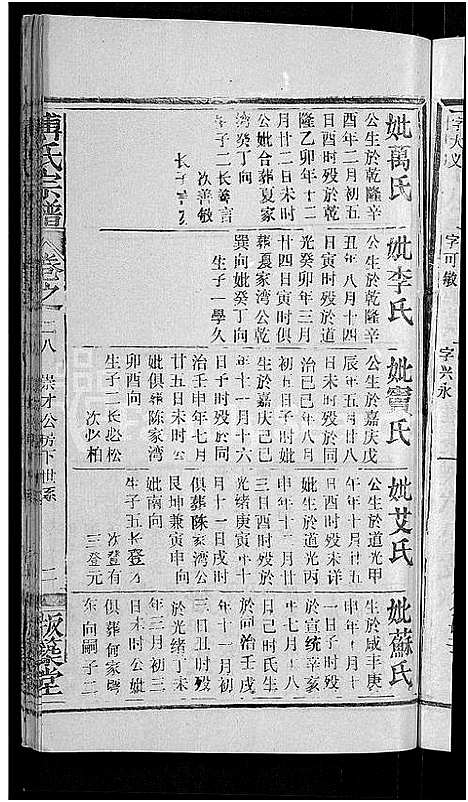 字大义
字可敏
字兴永
妣萬氏
公生於乾隆辛
酉年二月初五
日酉時殁於乾
隆乙卯年十二
月廿二日未時
公妣合葬夏家
湾癸丁向
生子二长善言
次善敏
妣李氏
公生於乾隆辛
丑年八月十四
日寅時殁於道
光癸卯年三月
廿四日寅時俱
葬夏家湾公乾
巽向妣癸丁向
生子一學久
妣竇氏
公生於嘉庆戊
辰年五月廿八
日未時殁於同
治己巳年八月
初五日子時妣
生於嘉庆己巳
年十一月十六
日子時殁於同
治壬申年七月
廿五日未時公
妣俱葬陈家湾
卯酉向
生子二长必松
次必柏
妣艾氏
公生於道光甲
午年十月廿五
日酉時殁未详
妣生於道光丙
申年十二月廿
三日酉時殁於
光绪庚寅年十
月十一日戌時
俱葬陈家湾公
艮坤兼寅申向
妣南向
生子五长登才
次登有
三登元
妣蘇氏
生於咸丰庚
申年
一日子時殁
於宣统辛亥
年七月十八
日己時氏生
於同治壬戌
年十一月初
三日丑時殁
於光绪丁未
年三月初三
日未時公妣
俱葬何家灣
东向嗣子二
傅氏宗譜
卷之一
二八
崇才公房下世系
二
版築堂